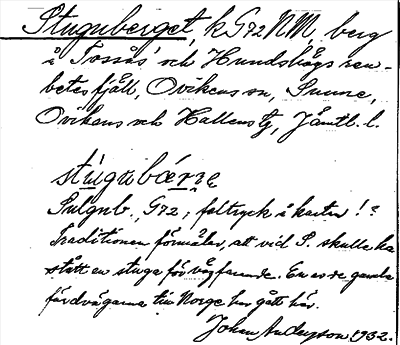 Stuguberget, k G72 NM, berg
i Tossås och Hundshögs ren-
betesfjäll, Ovikens sn, Sunne,
Ovikens och Hallens tg, Jämtl. l.
stúgubær̀ıe
Sulgub., G72; feltryck i kartan!?
Traditionen förmäler, att vid S. skulle ha
stått en stuga för vägfarande. En av de gamla
färdvägarna till Norge har gått här.
Johan Anderzson 1932.